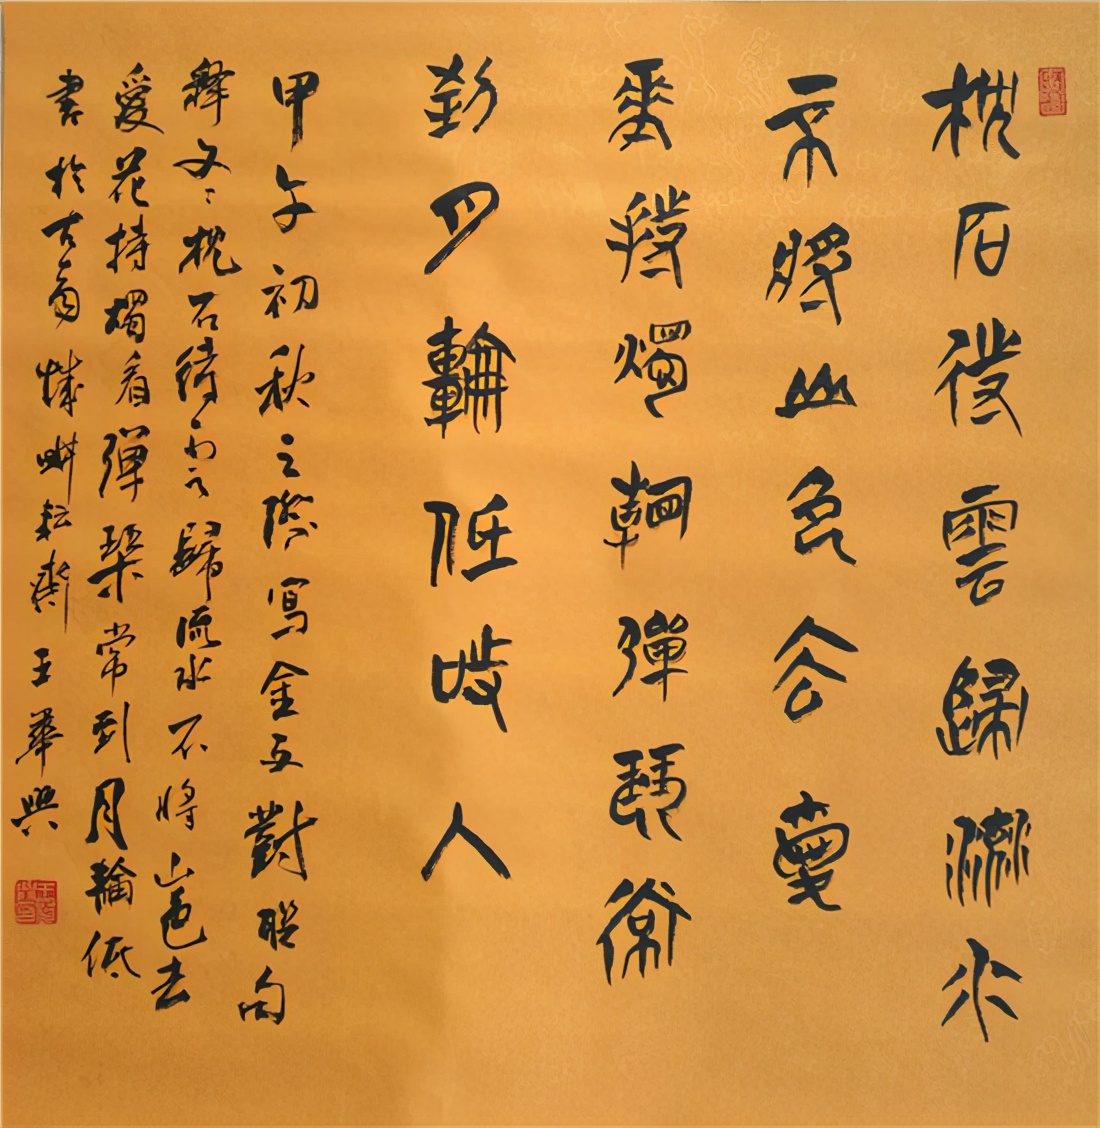 枕石待雲歸流水
不將山色去愛
花持燭看彈琴常
到月輪低人
甲午初秋之際寫金文對聯句
釋文：枕石待雲歸流水不將山色去
愛花持燭看彈琴常到月輪低
書於古商城耕耘齋王華興